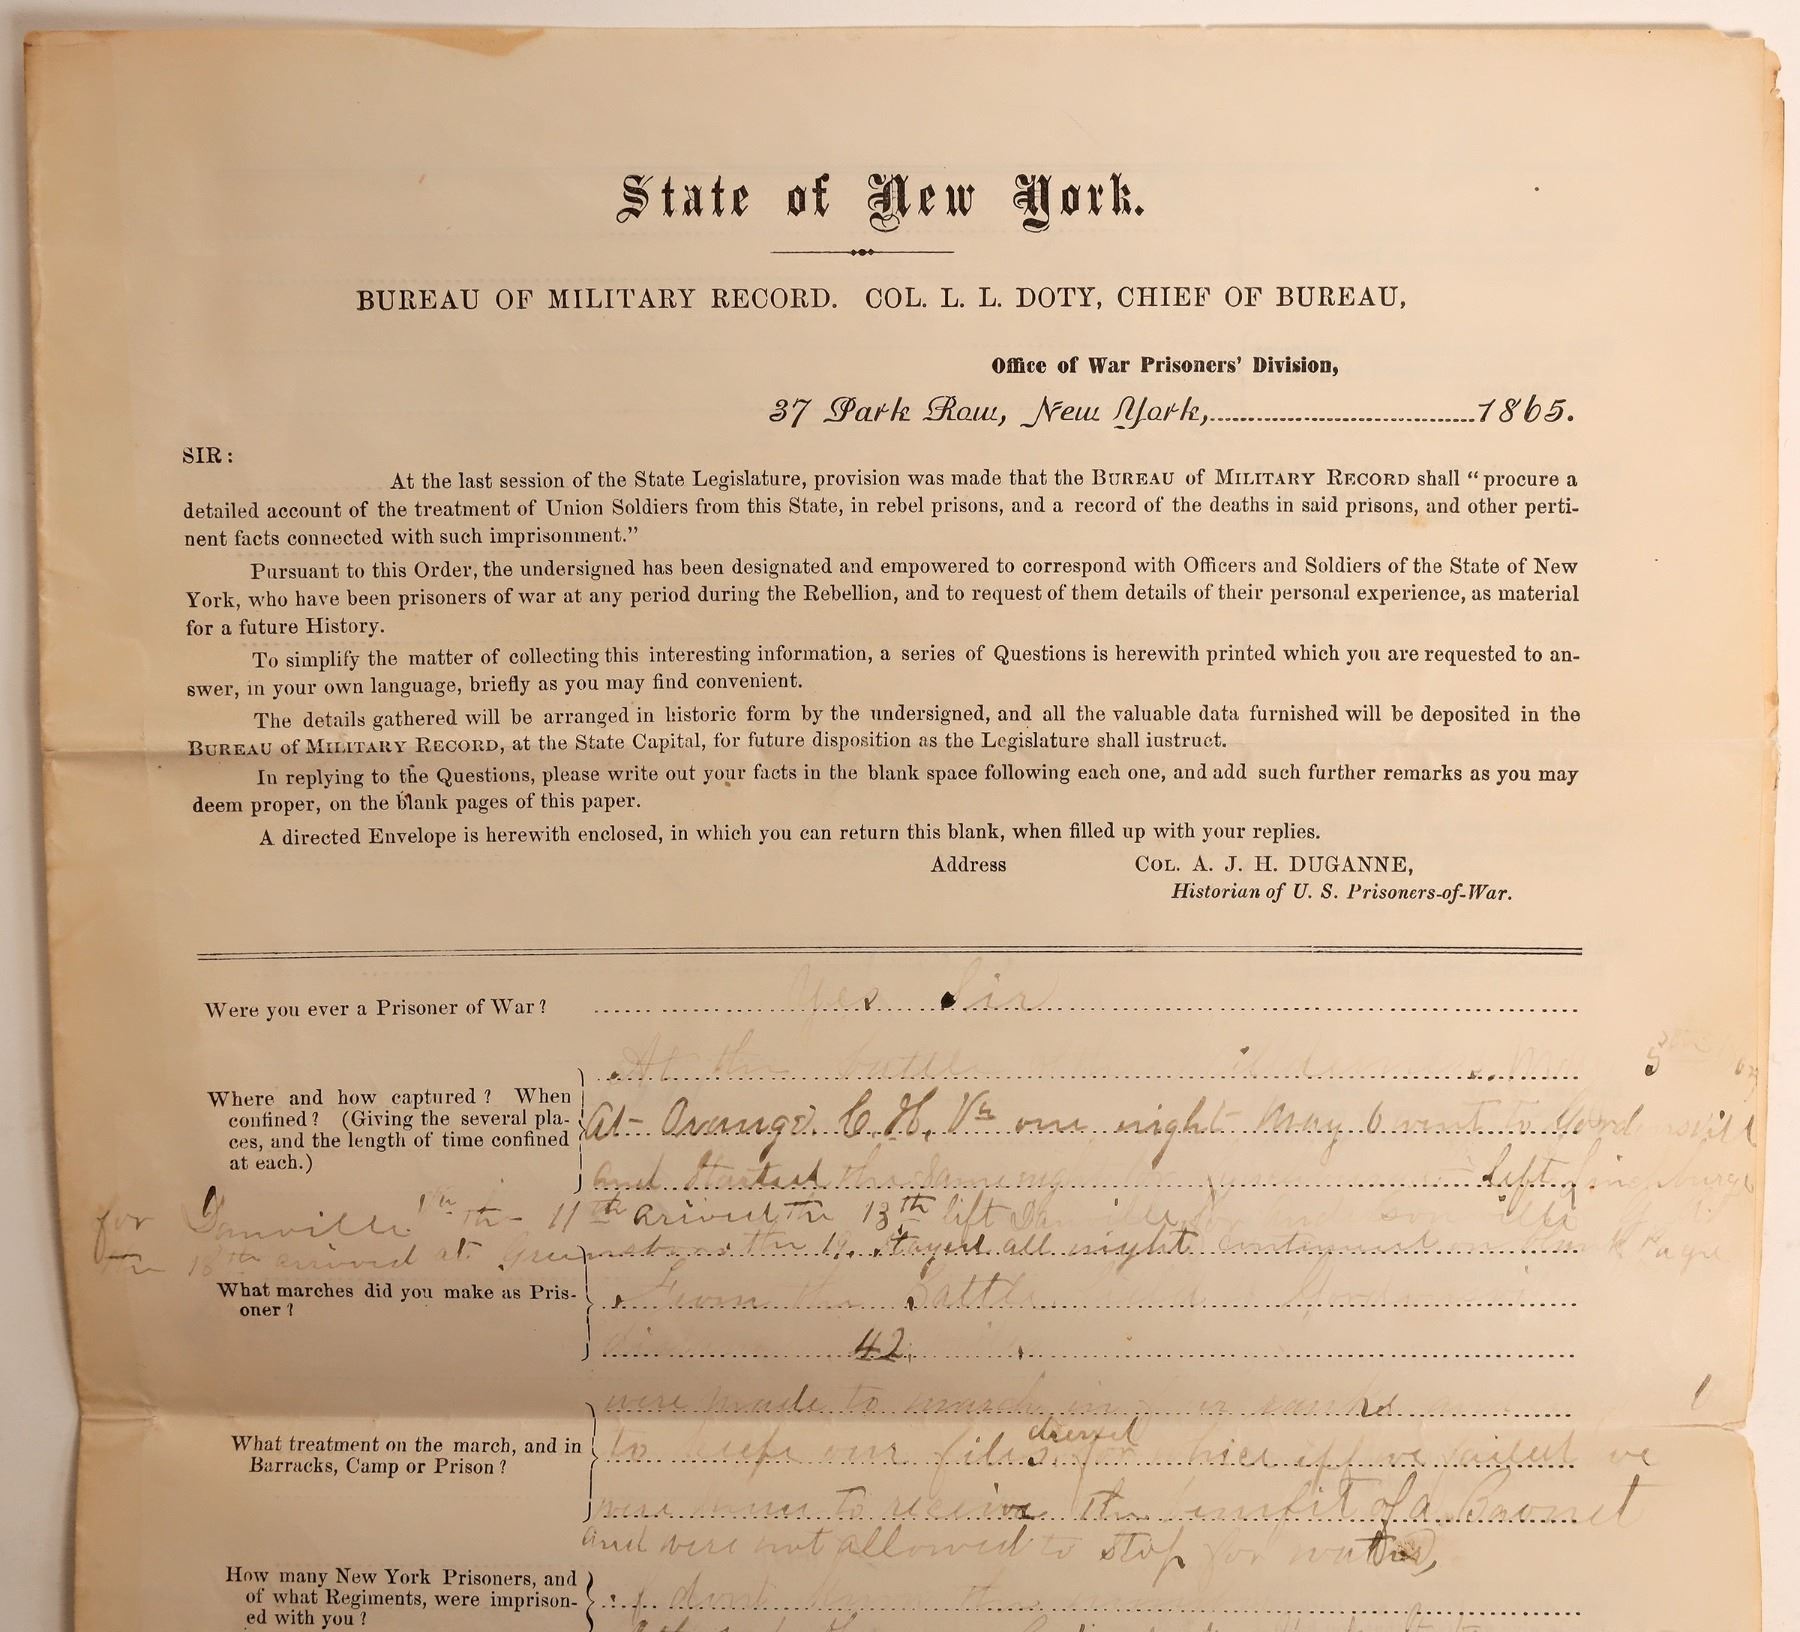 State of New York.
BUREAU OF MILITARY RECORD. COL. L. L. DOTY, CHIEF OF BUREAU,
Office of War Prisoners' Division,
37 Park Row, New York,..............................1865.
SIR:
At the last session of the State Legislature, provision was made that the BUREAU of MILITARY RECORD shall "procure a
detailed account of the treatment of Union Soldiers from this State, in rebel prisons, and a record of the deaths in said prisons, and other perti-
nent facts connected with such imprisonment."
Pursuant to this Order, the undersigned has been designated and empowered to correspond with Officers and Soldiers of the State of New
York, who have been prisoners of war at any period during the Rebellion, and to request of them details of their personal experience, as material
for a future History.
To simplify the matter of collecting this interesting information, a series of Questions is herewith printed which you are requested to an-
swer, in your own language, briefly as you may find convenient.
The details gathered will be arranged in historic form by the undersigned, and all the valuable data furnished will be deposited in the
BUREAU of MILITARY RECORD, at the State Capital, for future disposition as the Legislature shall iustruct.
In replying to the Questions, please write out your facts in the blank space following each one, and add such further remarks as you may
deem proper, on the blank pages of this paper.
A directed Envelope is herewith enclosed, in which you can return this blank, when filled up with your replies.
Address COL. A. J. H. DUGANNE,
Historian of U. S. Prisoners-of-War.
Were you ever a Prisoner of War? Yes Sir
Where and how captured? When
confined? (Giving the several pla-
ces, and the length of time confined
at each.)
At the battle May 5
At Orange C. H. Va one night May 6 went to
and started the same night for left
for Danville the 11th arived the 13th left Danville for
the 18th arrived at Greensboro the 19. Stayed all night continued on blank Page
What marches did you make as Pris-
oner?
From the Battle
42
What treatment on the march, and in
Barracks, Camp or Prison?
were made to march in ranks
to keep our files for if we failed we
were to receive the benifit of a Baonet
and were not allowed to stop for water,
How many New York Prisoners, and
of what Regiments, were imprison-
ed with you?
I dont know the